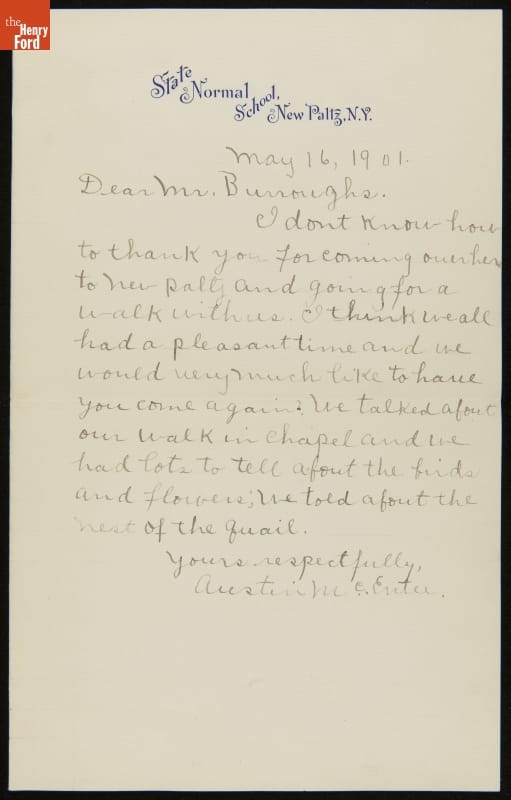 the
Henry
Ford
State
Normal
School,
New Paltz, N.Y.
May 16, 1901.
Dear Mr. Burroughs.
I dont know how
to thank you for coming over her
to New Paltz and going for a
walk with us. I think we all
had a pleasant time and we
would very much like to have
you come again. We talked about
our walk in chapel and we
had lots to tell about the birds
and flowers; We told about the
nest of the quail.
Yours respectfully,
Austin Mc. Entee.